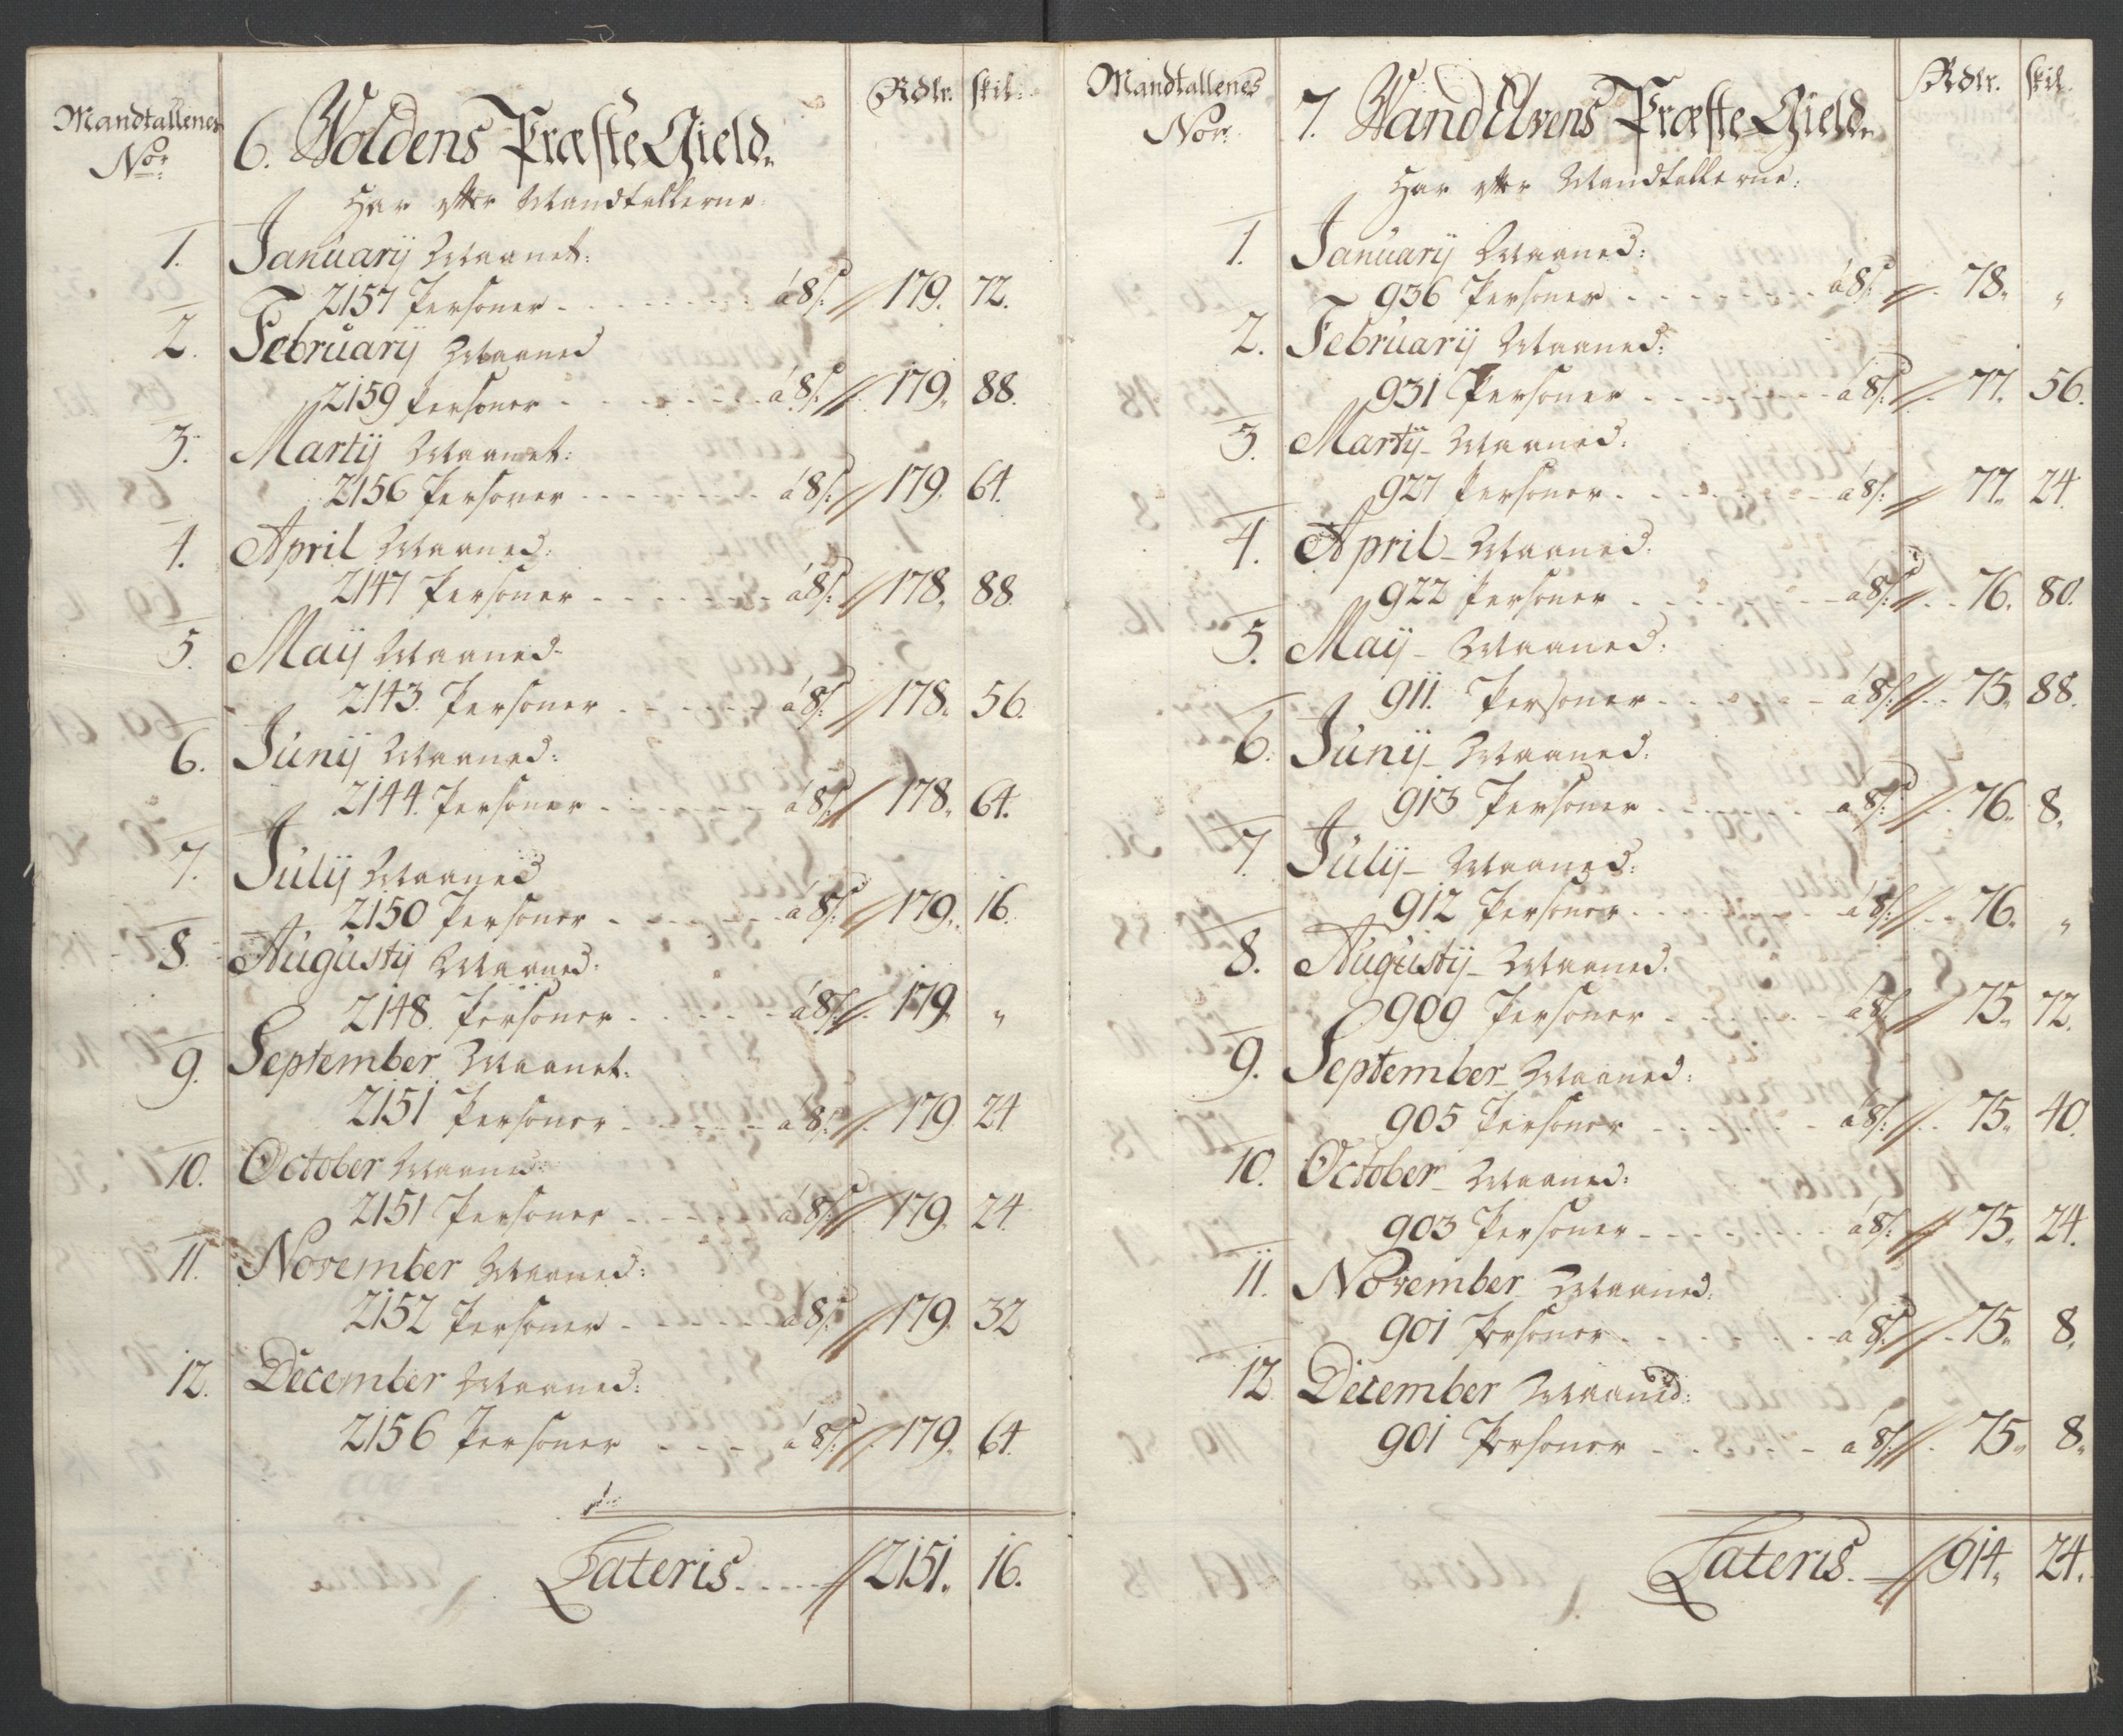 Mandtallenes
Nor.
6. Woldens Præste Gield.
Rdlr. skil:
Har efter Mandtallerne:
1. Januarij Maanet:
2157 Personer - - - - - á 8 s: // 179. 72.
2. Februarij Maaned
2159 Personer - - - - - á 8 s: // 179. 88.
3. Martij Maanet:
2156 Personer - - - - - á 8 s: // 179. 64.
4. April Maaned:
2147 Personer - - - - - á 8 s: // 178. 88.
5. Maij Maaned
2143. Personer - - - - - á 8 s: // 178. 56.
6. Junij Maaned:
2144. Personer - - - - - á 8 s: // 178. 64.
7. Julij Maaned
2150 Personer - - - - - á 8 s: // 179. 16.
8. Augustij Maaned:
2148. Personer - - - - - á 8 s: // 179. "
9. September Maanet:
2151 Personer - - - - - á 8 s: // 179. 24
10. October Maaned:
2151 Personer - - - - - á 8 s: // 179. 24.
11. November Maaned:
2152 Personer - - - - - á 8 s: // 179. 32
12. December Maaned:
2156 Personer - - - á 8 s: // 179. 64.
Lateris - - - - // 2151. 16.
Mandtallenes
Nor.
7. Wand Elvens Præste Gield.
Rdlr. skil.
Har efter Mandtallerne:
1. Januarij Maaned:
936 Personer - - - - - á 8 s: // 78. "
2. Februarij Maaned:
931 Personer - - - - - á 8 s: // 77. 56.
3. Martij Maaned:
927 Personer - - - - - á 8 s: // 77. 24.
4. April Maaned:
922 Personer - - - - - á 8 s: // 76. 80.
5. Maij Maaned:
911. Personer - - - - - á 8 s: // 75. 88.
6. Junij Maaned:
913 Personer - - - - - á 8 s: // 76. 8.
7. Julij Maaned:
912 Personer - - - - - á 8 s: // 76. "
8. Augustij Maaned.
909 Personer - - - - - á 8 s: // 75. 72.
9. September Maaned:
905 Personer - - - - - á 8 s: // 75. 40.
10. October Maaned:
903 Personer - - - - - á 8 s: // 75. 24.
11. November Maaned:
901 Personer - - - - - á 8 s: // 75. 8.
12 December Maaned:
901 Personer - - - - - á 8 s: // 75. 8.
Lateris. - // 914. 24.